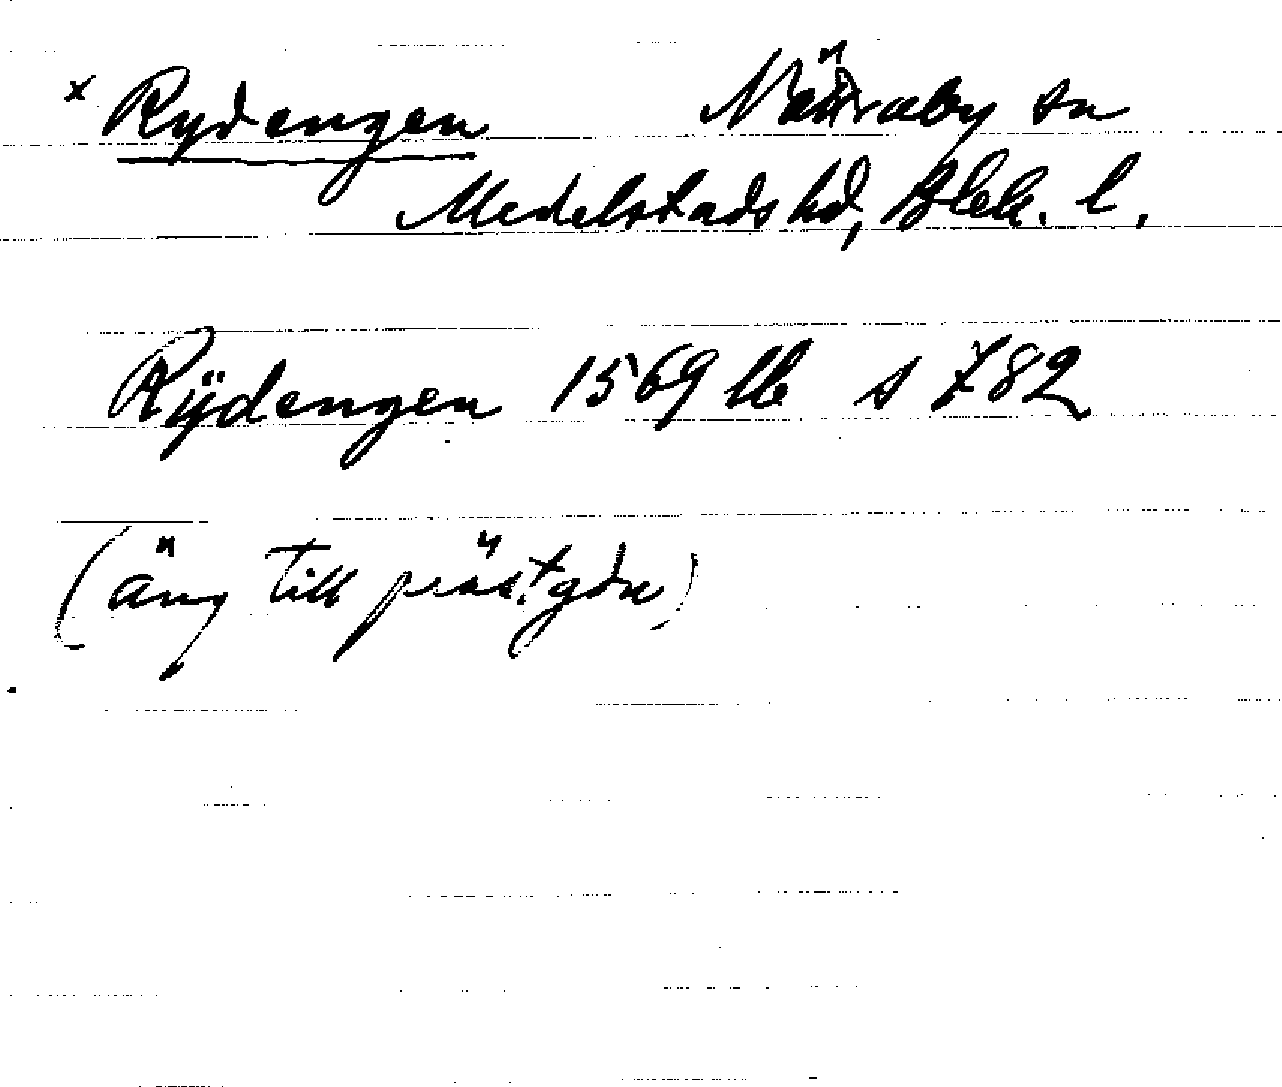 x Rydengen Nättraby sn
Medelstads hd, Blek. l.
Rÿdengen 1569 lb s 782
(äng till prästgdn)